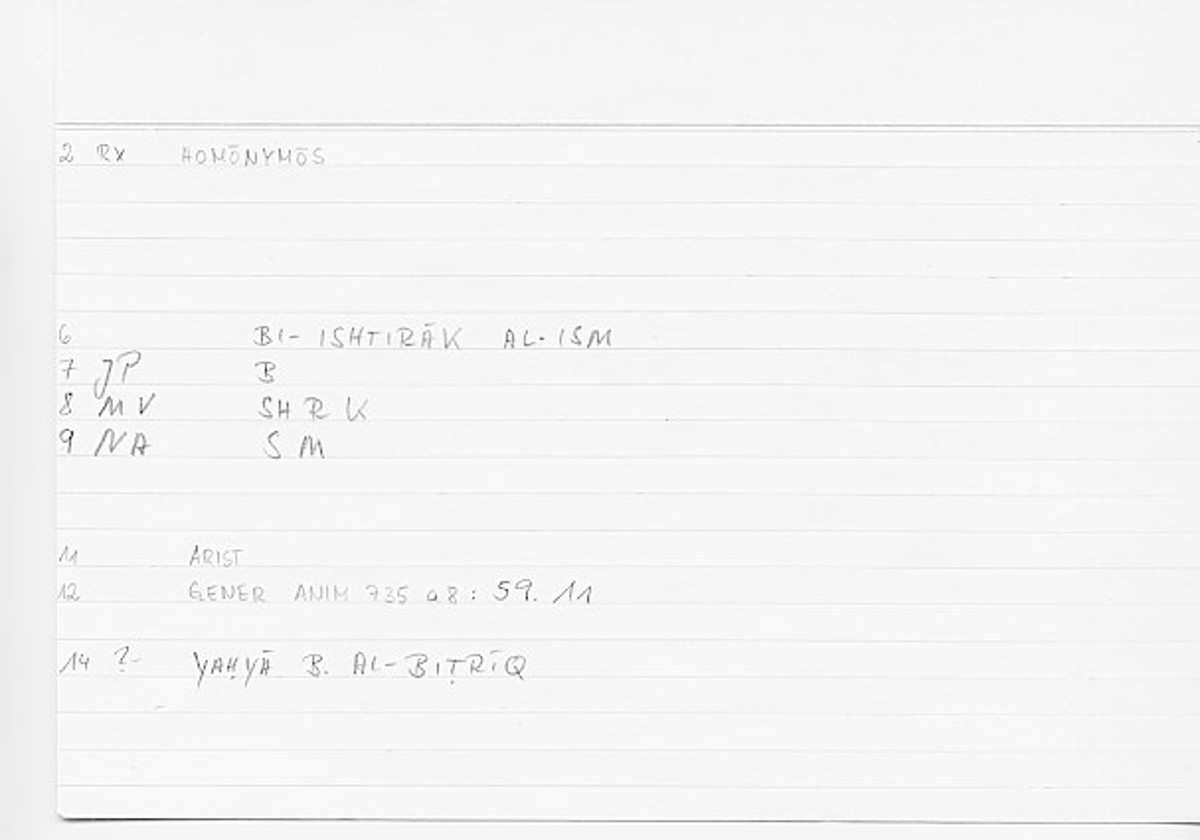 2 RX HOMŌNYMŌS
6 BI- ISHTIRĀK AL-ISM
7 JP B
8 MV SH R K
9 NA S M
11 ARIST
12 GENER ANIM 735 a 8 : 59. 11
14 ? YAḤYĀ B. AL-BIṬRĪQ